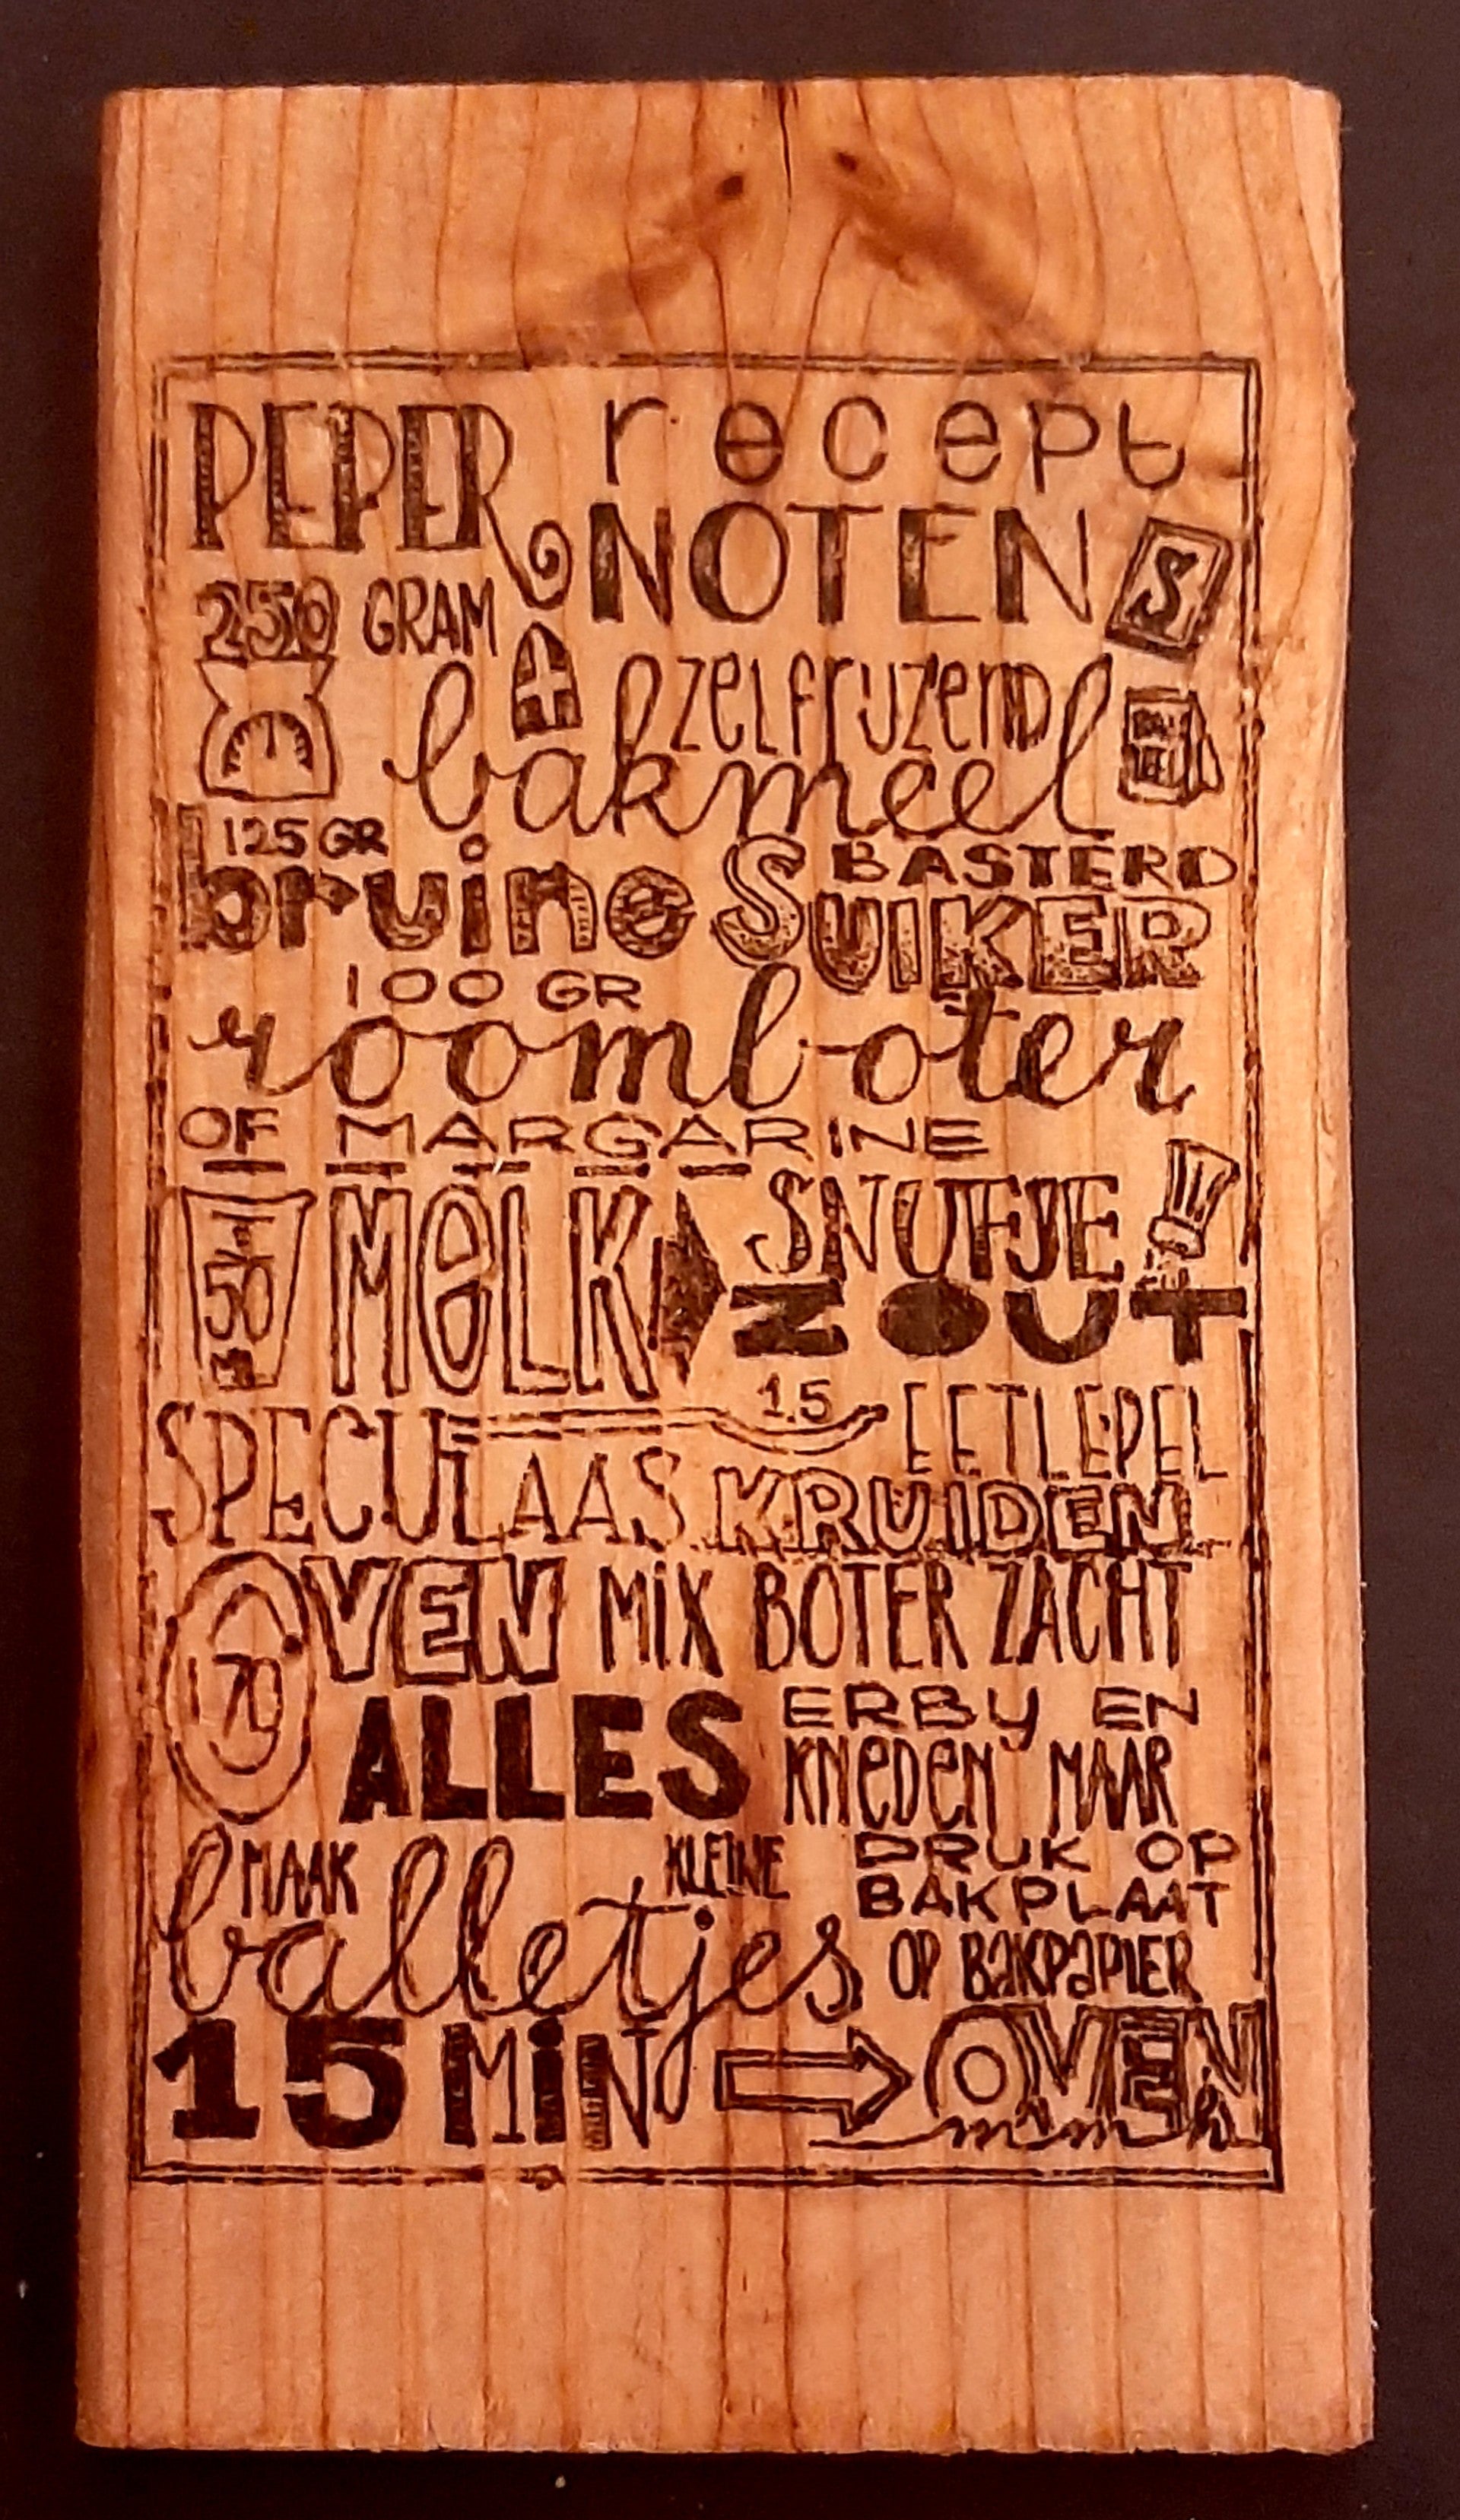 PEPER recept
NOTEN S
250 GRAM
zelfrijzend
bakmeel
125 GR
bruine BASTERD
SUIKER
100 GR
roomboter
OF MARGARINE
50 MELK SNUFJE
ZOUT
1.5 EETLEPEL
SPECULAAS KRUIDEN
OVEN MIX BOTER ZACHT
170
ALLES ERBIJ EN
KNEDEN MAAR
MAAK KLEINE
balletjes
DRUK OP
BAKPLAAT
OP BAKPAPIER
15 MIN OVEN